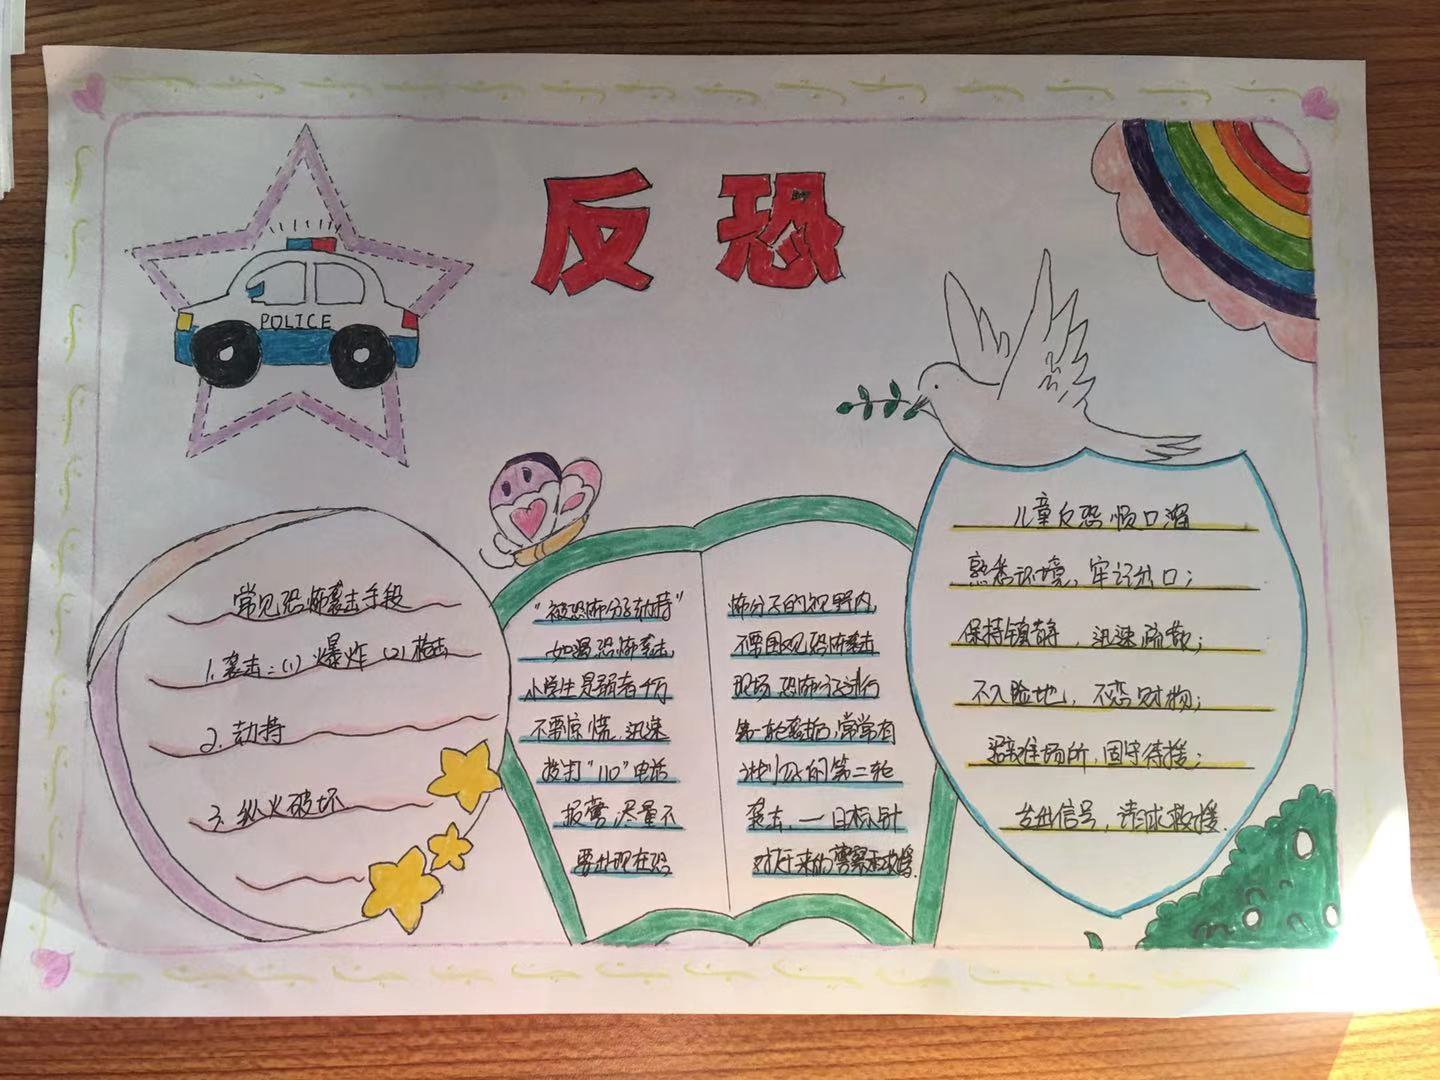 反恐
POLICE
常见恐怖袭击手段
1.袭击:(1)爆炸 (2)枪击
2.劫持
3.纵火破坏
"被恐怖分子劫持"
如遇恐怖袭击,
小学生是弱者千万
不要惊慌,迅速
拨打"110"电话
报警,尽量不
要出现在恐
怖分子的视野内,
不要围观恐怖袭击
现场,恐怖分子进行
第一轮袭击后,常常有
计划好的第二轮
袭击,一目标针
对赶来的警察和救援.
儿童反恐顺口溜
熟悉环境,牢记出口;
保持镇静,迅速疏散;
不入险地,不恋财物;
避难场所,固守待援;
发出信号,请求救援.